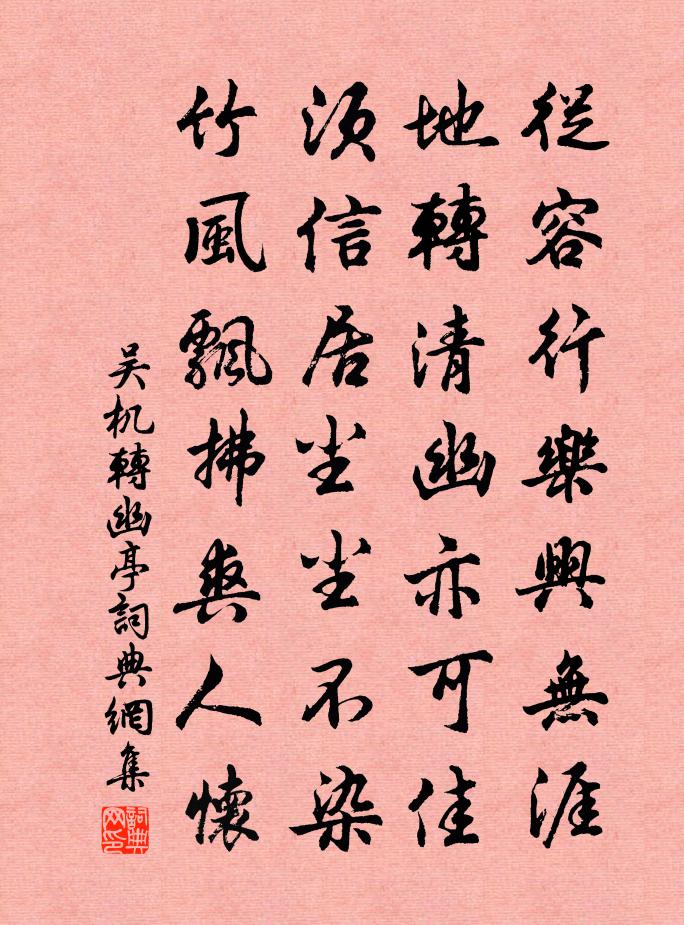 從容行樂興無涯
地轉清幽亦可佳
須信居尘尘不染
竹風飄拂爽人懷
吴机轉幽亭詞典網集
詞典网印